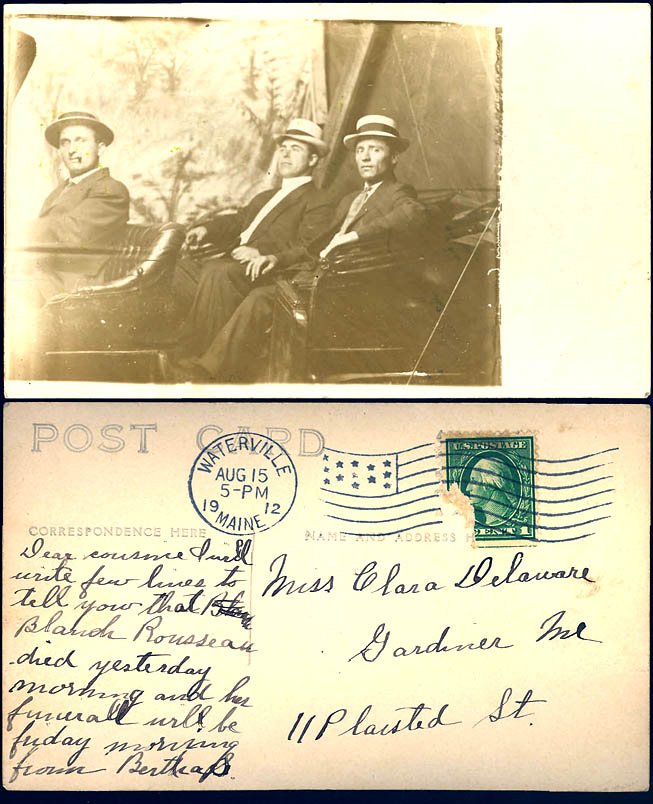 POST CARD
WATERVILLE
AUG 15
5-PM
19 12
MAINE
U.S. POSTAGE
CENTS 1
CORRESPONDENCE HERE
NAME AND ADDRESS H
Dear cousine I will
write few lines to
tell yow that
Blanch Rousseau
died yesterday
morning and her
funerall will be
friday morning
from Bertha
Miss Clara Delaware
Gardiner Me
11 Plaisted St.